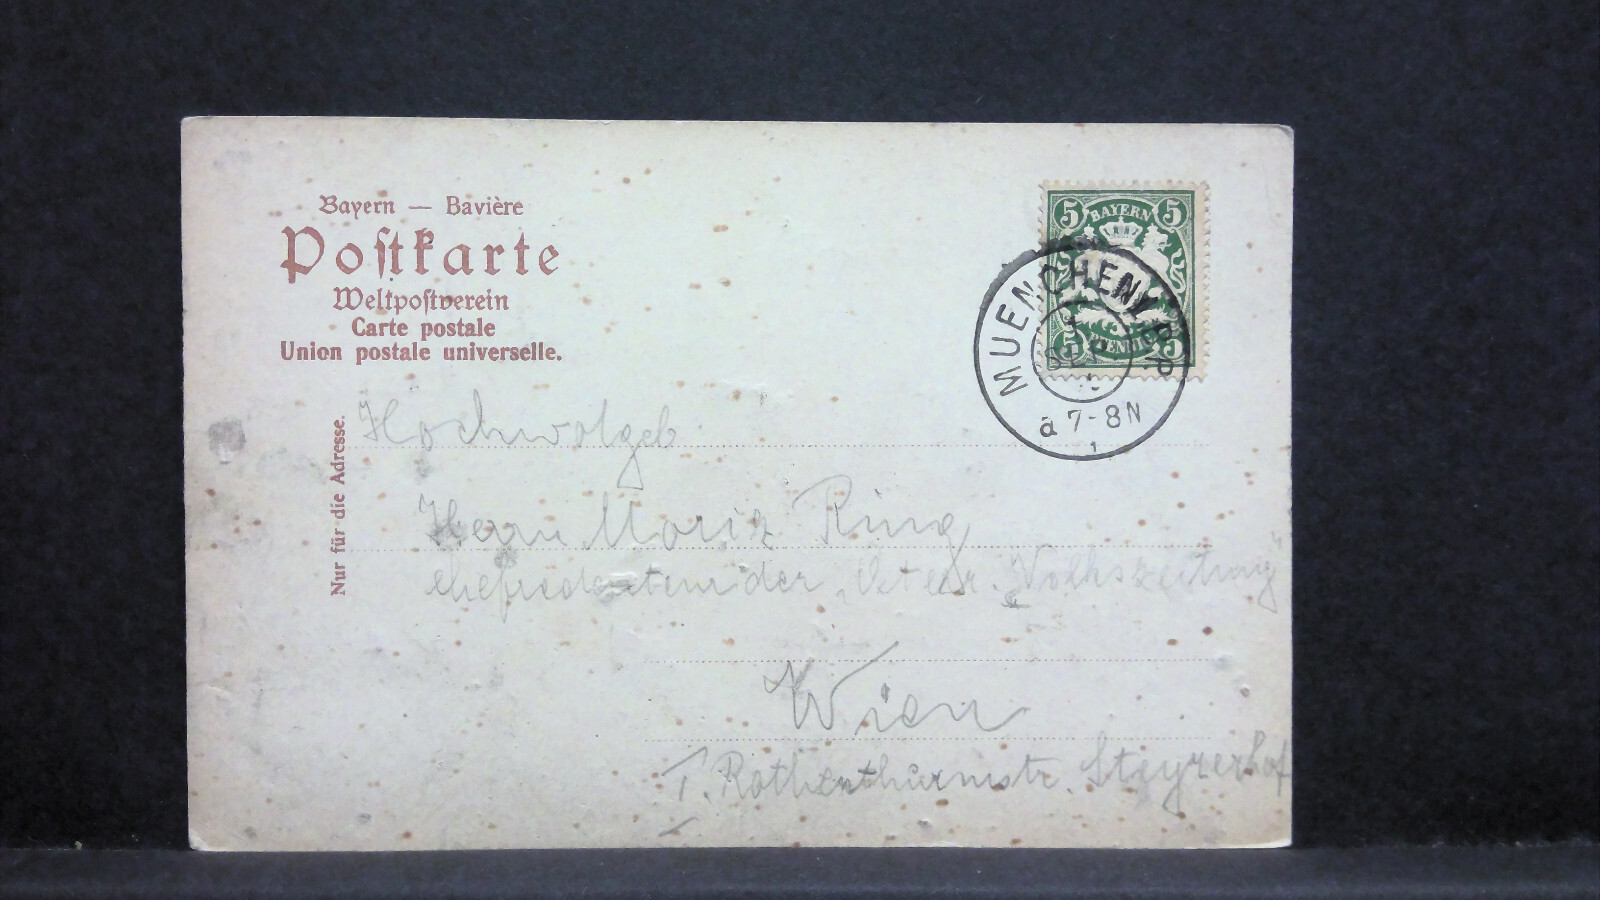 Bayern — Bavière
Postkarte
Weltpostverein
Carte postale
Union postale universelle.
Nur für die Adresse.
5 BAYERN 5
5 PFENNIG 5
MUENCHEN
SEP
a 7-8N
1
Hochwolgeb
Herrn Moriz Ring
Chefredakteur der „Oesterr. Volkszeitung"
Wien
I. Rothenthurmstr. Steyrerhof